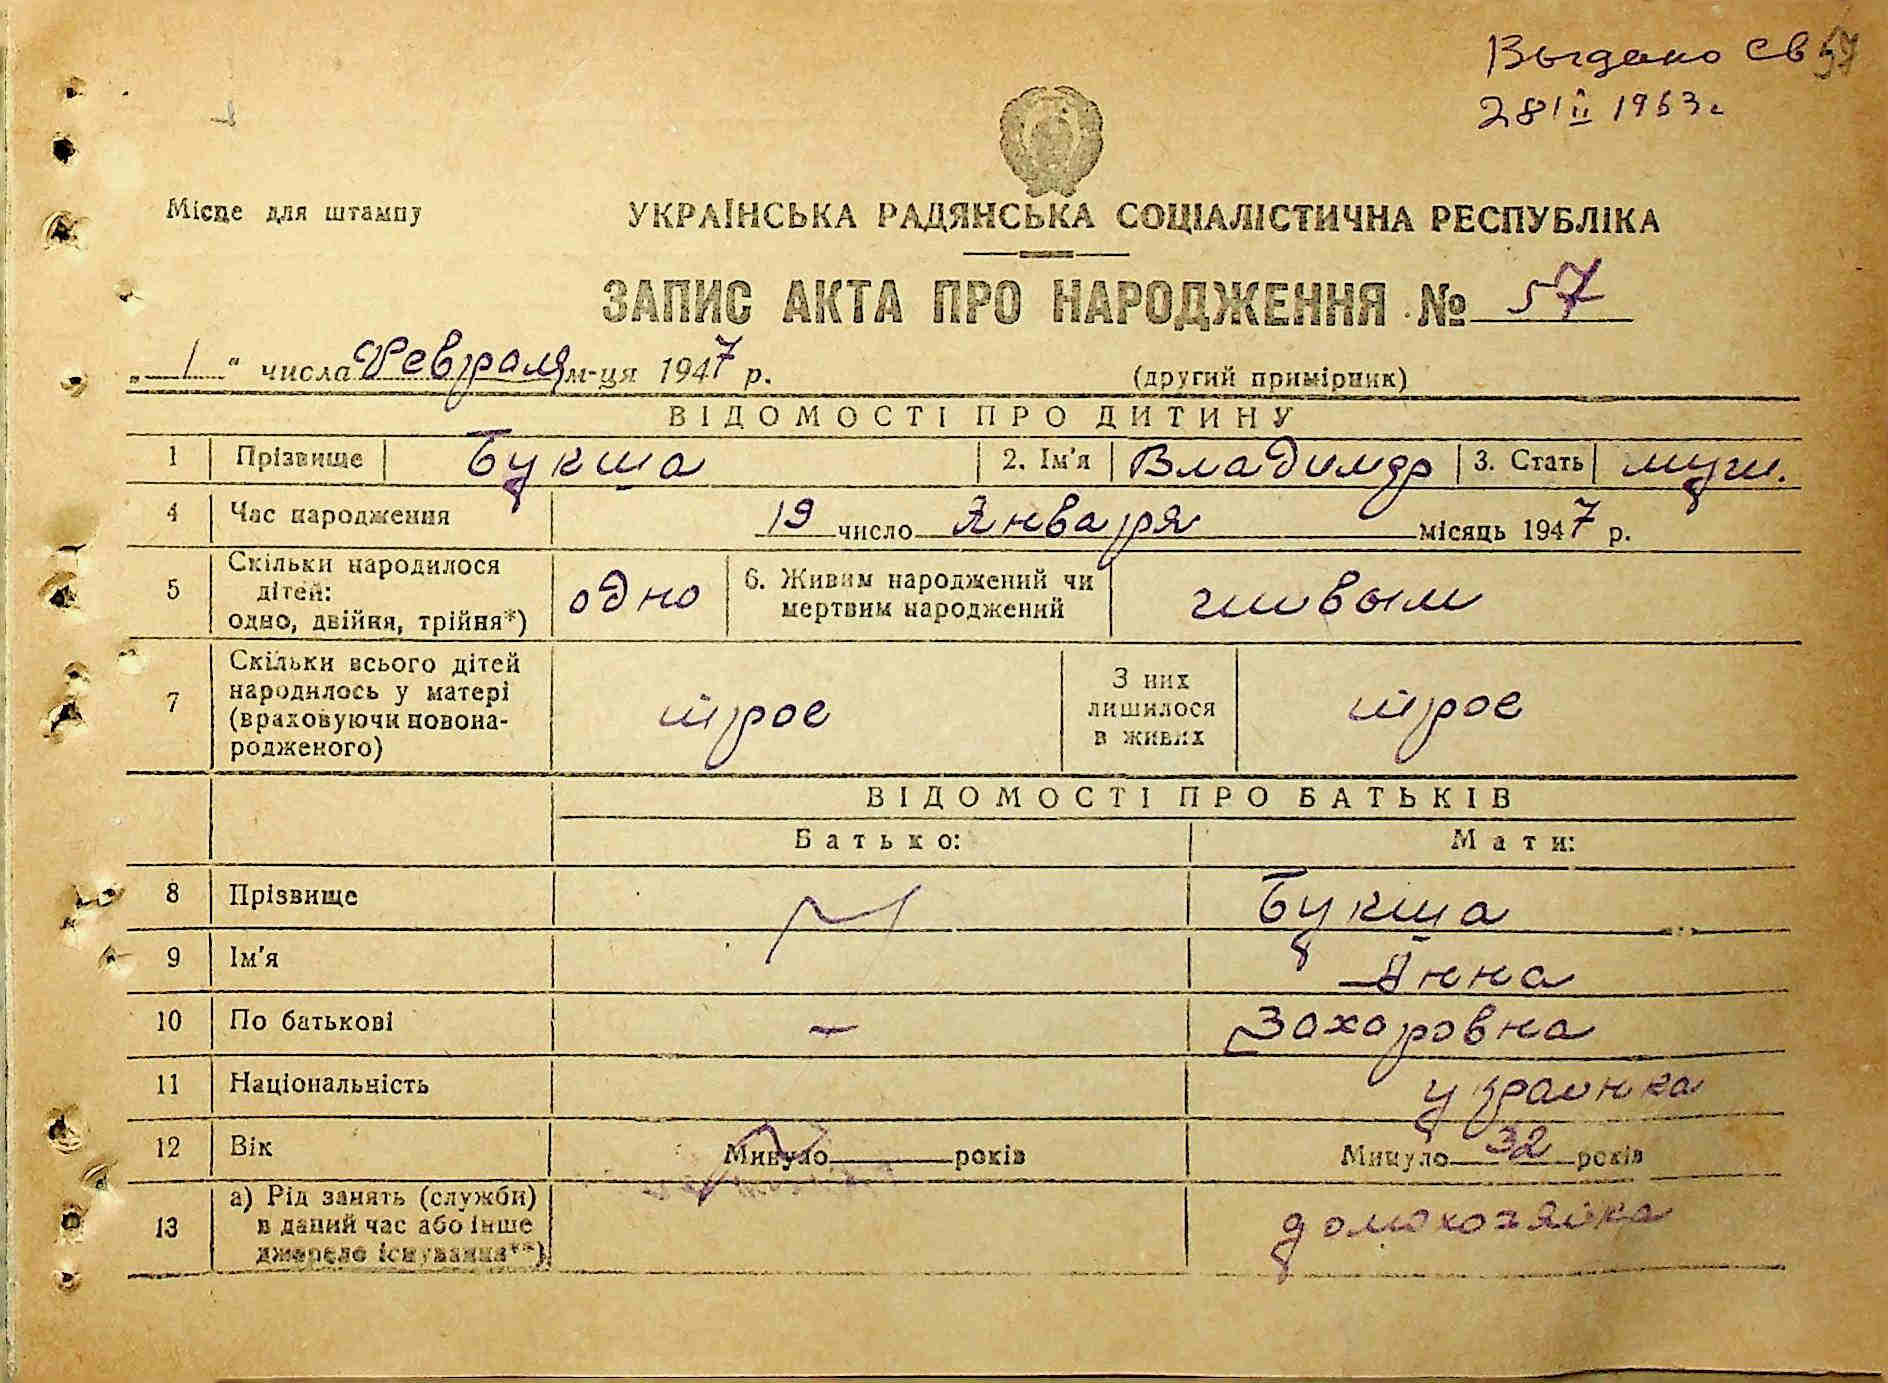 Выдано св 57
28/II 1963 г
Місце для штампу
УКРАЇНСЬКА РАДЯНСЬКА СОЦІАЛІСТИЧНА РЕСПУБЛІКА
ЗАПИС АКТА ПРО НАРОДЖЕННЯ № 57
„1“ числа Февраля м-ця 1947 р.
(другий примірник)
ВІДОМОСТІ ПРО ДИТИНУ
1 Прізвище Букша 2. Ім'я Владимир 3. Стать муж.
4 Час народження 19 число Января місяць 1947 р.
5 Скільки народилося дітей: одно, двійня, трійня*) одно 6. Живим народжений чи мертвим народжений живым
7 Скільки всього дітей народилось у матері (враховуючи новона-родженого) трое З них лишилося в живих трое
ВІДОМОСТІ ПРО БАТЬКІВ
Батько: Мати:
8 Прізвище Букша
9 Ім'я Анна
10 По батькові – Захаровна
11 Національність украинка
12 Вік Минуло років Минуло 32 років
13 а) Рід занять (служби) в даний час або інше джерело існування**) домохозяйка